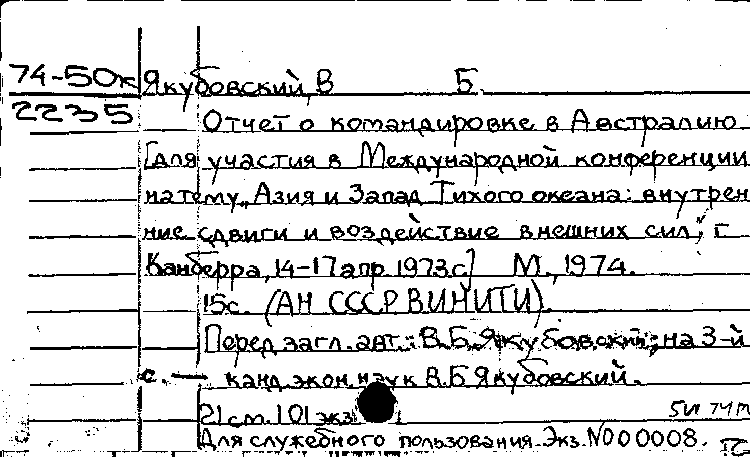 74-50к Якубовский, В Б.
2235
Отчет о командировке в Австралию
[для участия в Международной конференции
на тему „Азия и Запад Тихого океана: внутрен
ние сдвиги и воздействие внешних сил", г
Канберра, 14-17 апр 1973г] М., 1974.
15с. (АН СССР ВИНИТИ).
Перед загл. авт.: В.Б.Якубовский; на 3-й
с. — канд экон наук В.Б Якубовский.
21 см. 101 экз
5и 74
Для служебного пользования. Экз. №000008.